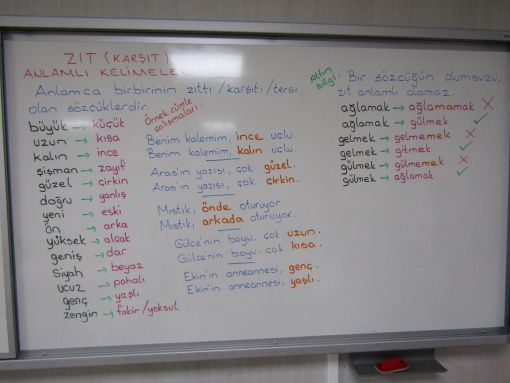 ZIT (KARŞIT)
ANLAMLI KELİMELER
Anlamca birbirinin zıttı/karşıtı/tersi
olan sözcüklerdir.
büyük → küçük
uzun → kısa
kalın → ince
şişman → zayıf
güzel → çirkin
doğru → yanlış
yeni → eski
ön → arka
yüksek → alçak
geniş → dar
siyah → beyaz
ucuz → pahalı
genç → yaşlı
zengin → fakir/yoksul
Örnek cümle
çalışmaları:
Benim kalemim, ince uçlu.
Benim kalemim, kalın uçlu.
Aras'ın yazısı, çok güzel.
Aras'ın yazısı, çok çirkin.
Mıstık, önde oturuyor.
Mıstık, arkada oturuyor.
Gülce'nin boyu, çok uzun.
Gülce'nin boyu, çok kısa.
Ekin'in anneannesi, genç.
Ekin'in anneannesi, yaşlı.
Altın
bilgi:
Bir sözcüğün olumsuzu,
zıt anlamlı olamaz.
ağlamak → ağlamamak ✗
ağlamak → gülmek ✓
gelmek → gelmemek ✗
gelmek → gitmek ✓
gülmek → gülmemek ✗
gülmek → ağlamak ✓